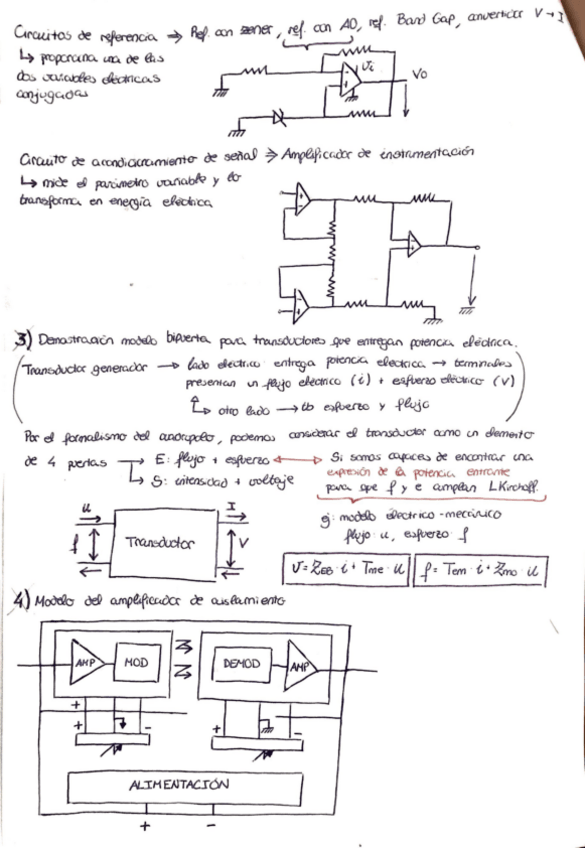 Circuitos de referencia → Ref. con zener, ref. con AO, ref. Band Gap, convertidor V → I
↳ proporciona una de las
dos variables eléctricas
conjugadas
Vi
Vo
Circuito de acondicionamiento de señal ⇒ Amplificador de instrumentación
↳ mide el parámetro variable y lo
transforma en energía eléctrica
3) Demostración modelo bipuerta para transductores que entregan potencia eléctrica.
Transductor generador → lado eléctrico: entrega potencia eléctrica → terminales
presentan un flujo eléctrico (i) + esfuerzo eléctrico (v)
↳ otro lado → tb esfuerzo y flujo
Por el formalismo del cuadripolo, podemos considerar el transductor como un elemento
de 4 puertas → E: flujo + esfuerzo ↔ Si somos capaces de encontrar una
↳ S: intensidad + voltaje
expresión de la potencia entrante
para que f y e cumplan L.Kirchoff.
u
I
f
Transductor
V
ej: modelo eléctrico-mecánico
flujo: u, esfuerzo: f
V = ZEB · i + Tme · u
f = Tem · i + Zmo · u
4) Modelo del amplificador de aislamiento
AMP
MOD
DEMOD
AMP
+
+ -
+ -
ALIMENTACIÓN
+ -